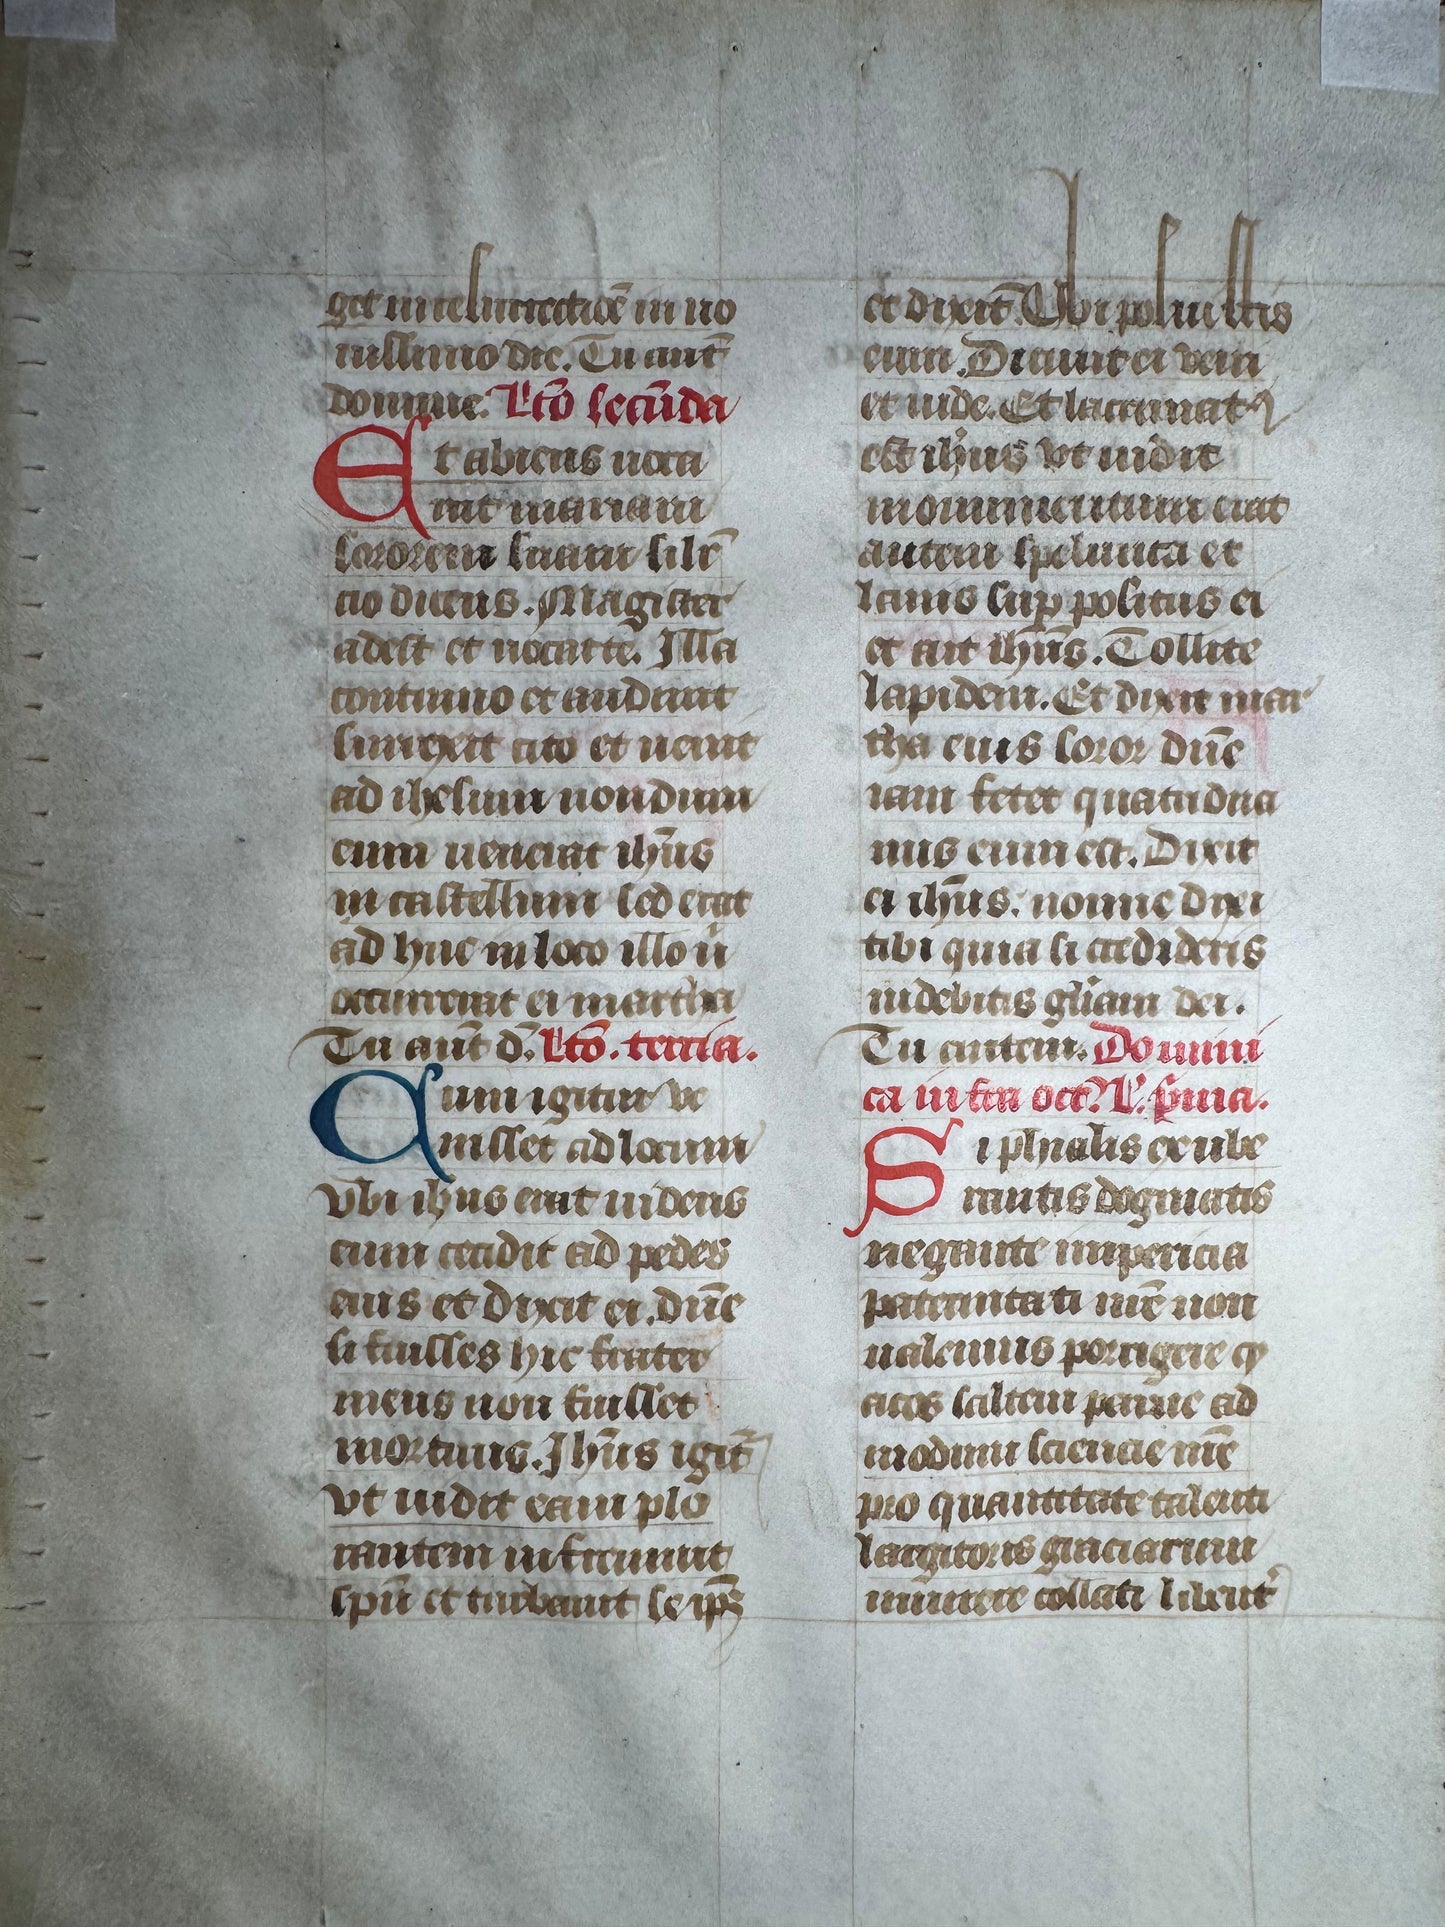 get in resurrectiōe in no
uissimo die. Tu aut̄
domine. Lc̄o secūda
Et abiens uoca
uit mariam
sororem suam silē
cio dicens. Magister
adest et uocat te. Illa
continuo ut audiuit
surrexit cito et uenit
ad ihesum nondum
enim uenerat ihūs
in castellum sed erat
ad huc in loco illo ū
occurrerat ei martha
Tu aūt d̄. Lc̄o. tercia.
Cum igitur ve
nisset ad locum
vbi ihūs erat uidens
eum cecidit ad pedes
eius et dixit ei. dūe
si fuisses hic frater
meus non fuisset
mortuus. Ihūs igit̄
vt uidit eam plo
rantem infremuit
spū et turbauit se ip̄s
et dixit. Vbi posuistis
eum. Dicunt ei veni
et uide. Et lacrimatꝰ
est ihūs vt uidit
monumentum erat
autem spelunca et
lapis suꝑ positus ei
et ait ihūs. Tollite
lapidem. Et dixit mar
tha eius soror dūe
iam fetet quatridua
nus enim est. Dixit
ei ihūs. nonne dixi
tibi quia si credideris
uidebitis gl̄iam dei.
Tu autem. Domini
ca infra oct̄. L. pͥma.
Si phialis exube
rantis dogmatis
negante impericia
paternitati ur̄e non
ualemus porrigere cy
atos saltem parue ad
modum sciencie nr̄e
pro quantitate talenti
largitoris graciarum
munere collati libent̄